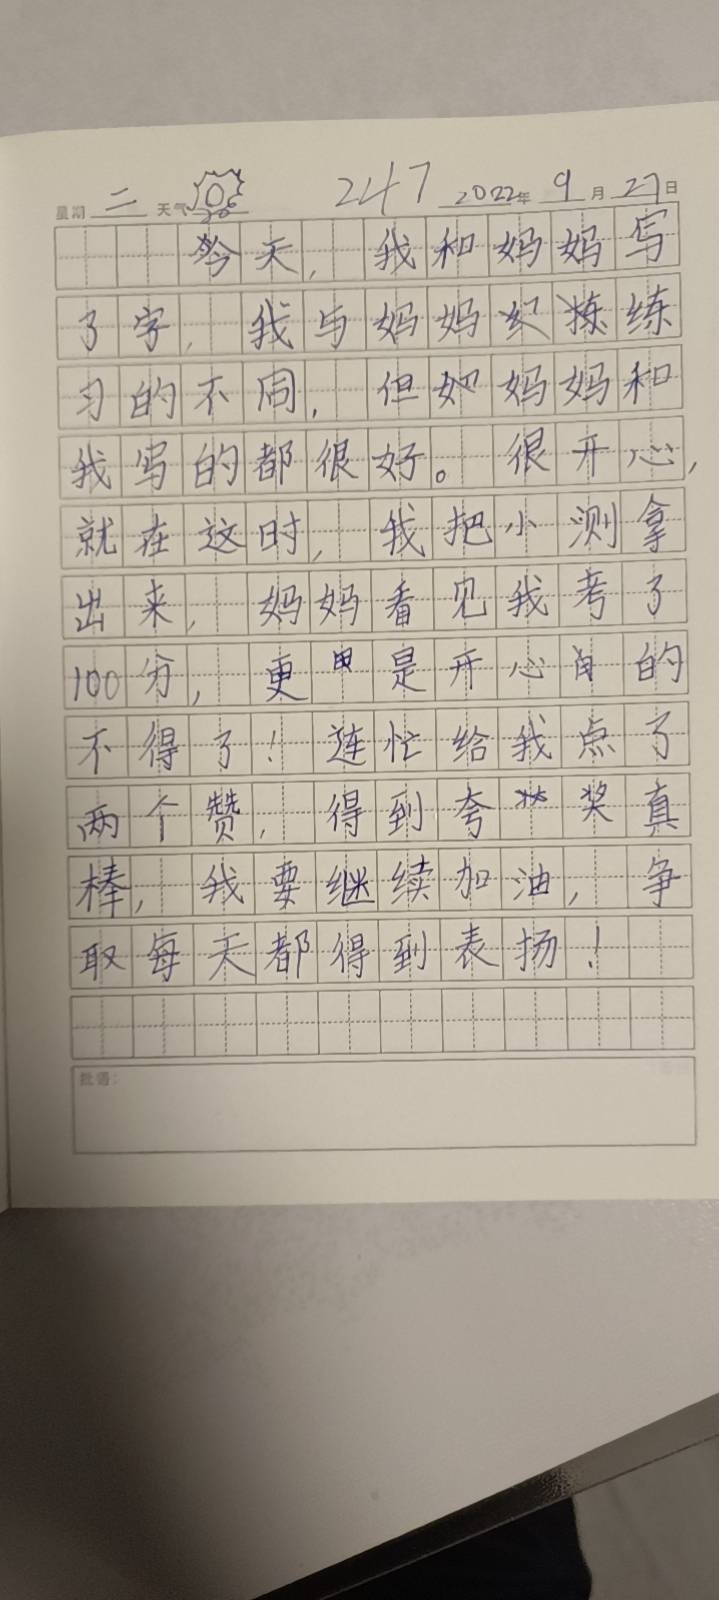 星期 二 天气 247 2022年 9月 27日
今天，我和妈妈写
了字，我与妈妈练
习的不同，但妈妈和
我写的都很好。很开心，
就在这时，我把小测拿
出来，妈妈看见我考了
100分，更是开心的
不得了！连忙给我点了
两个赞，得到夸奖真
棒，我要继续加油，争
取每天都得到表扬！
批语：